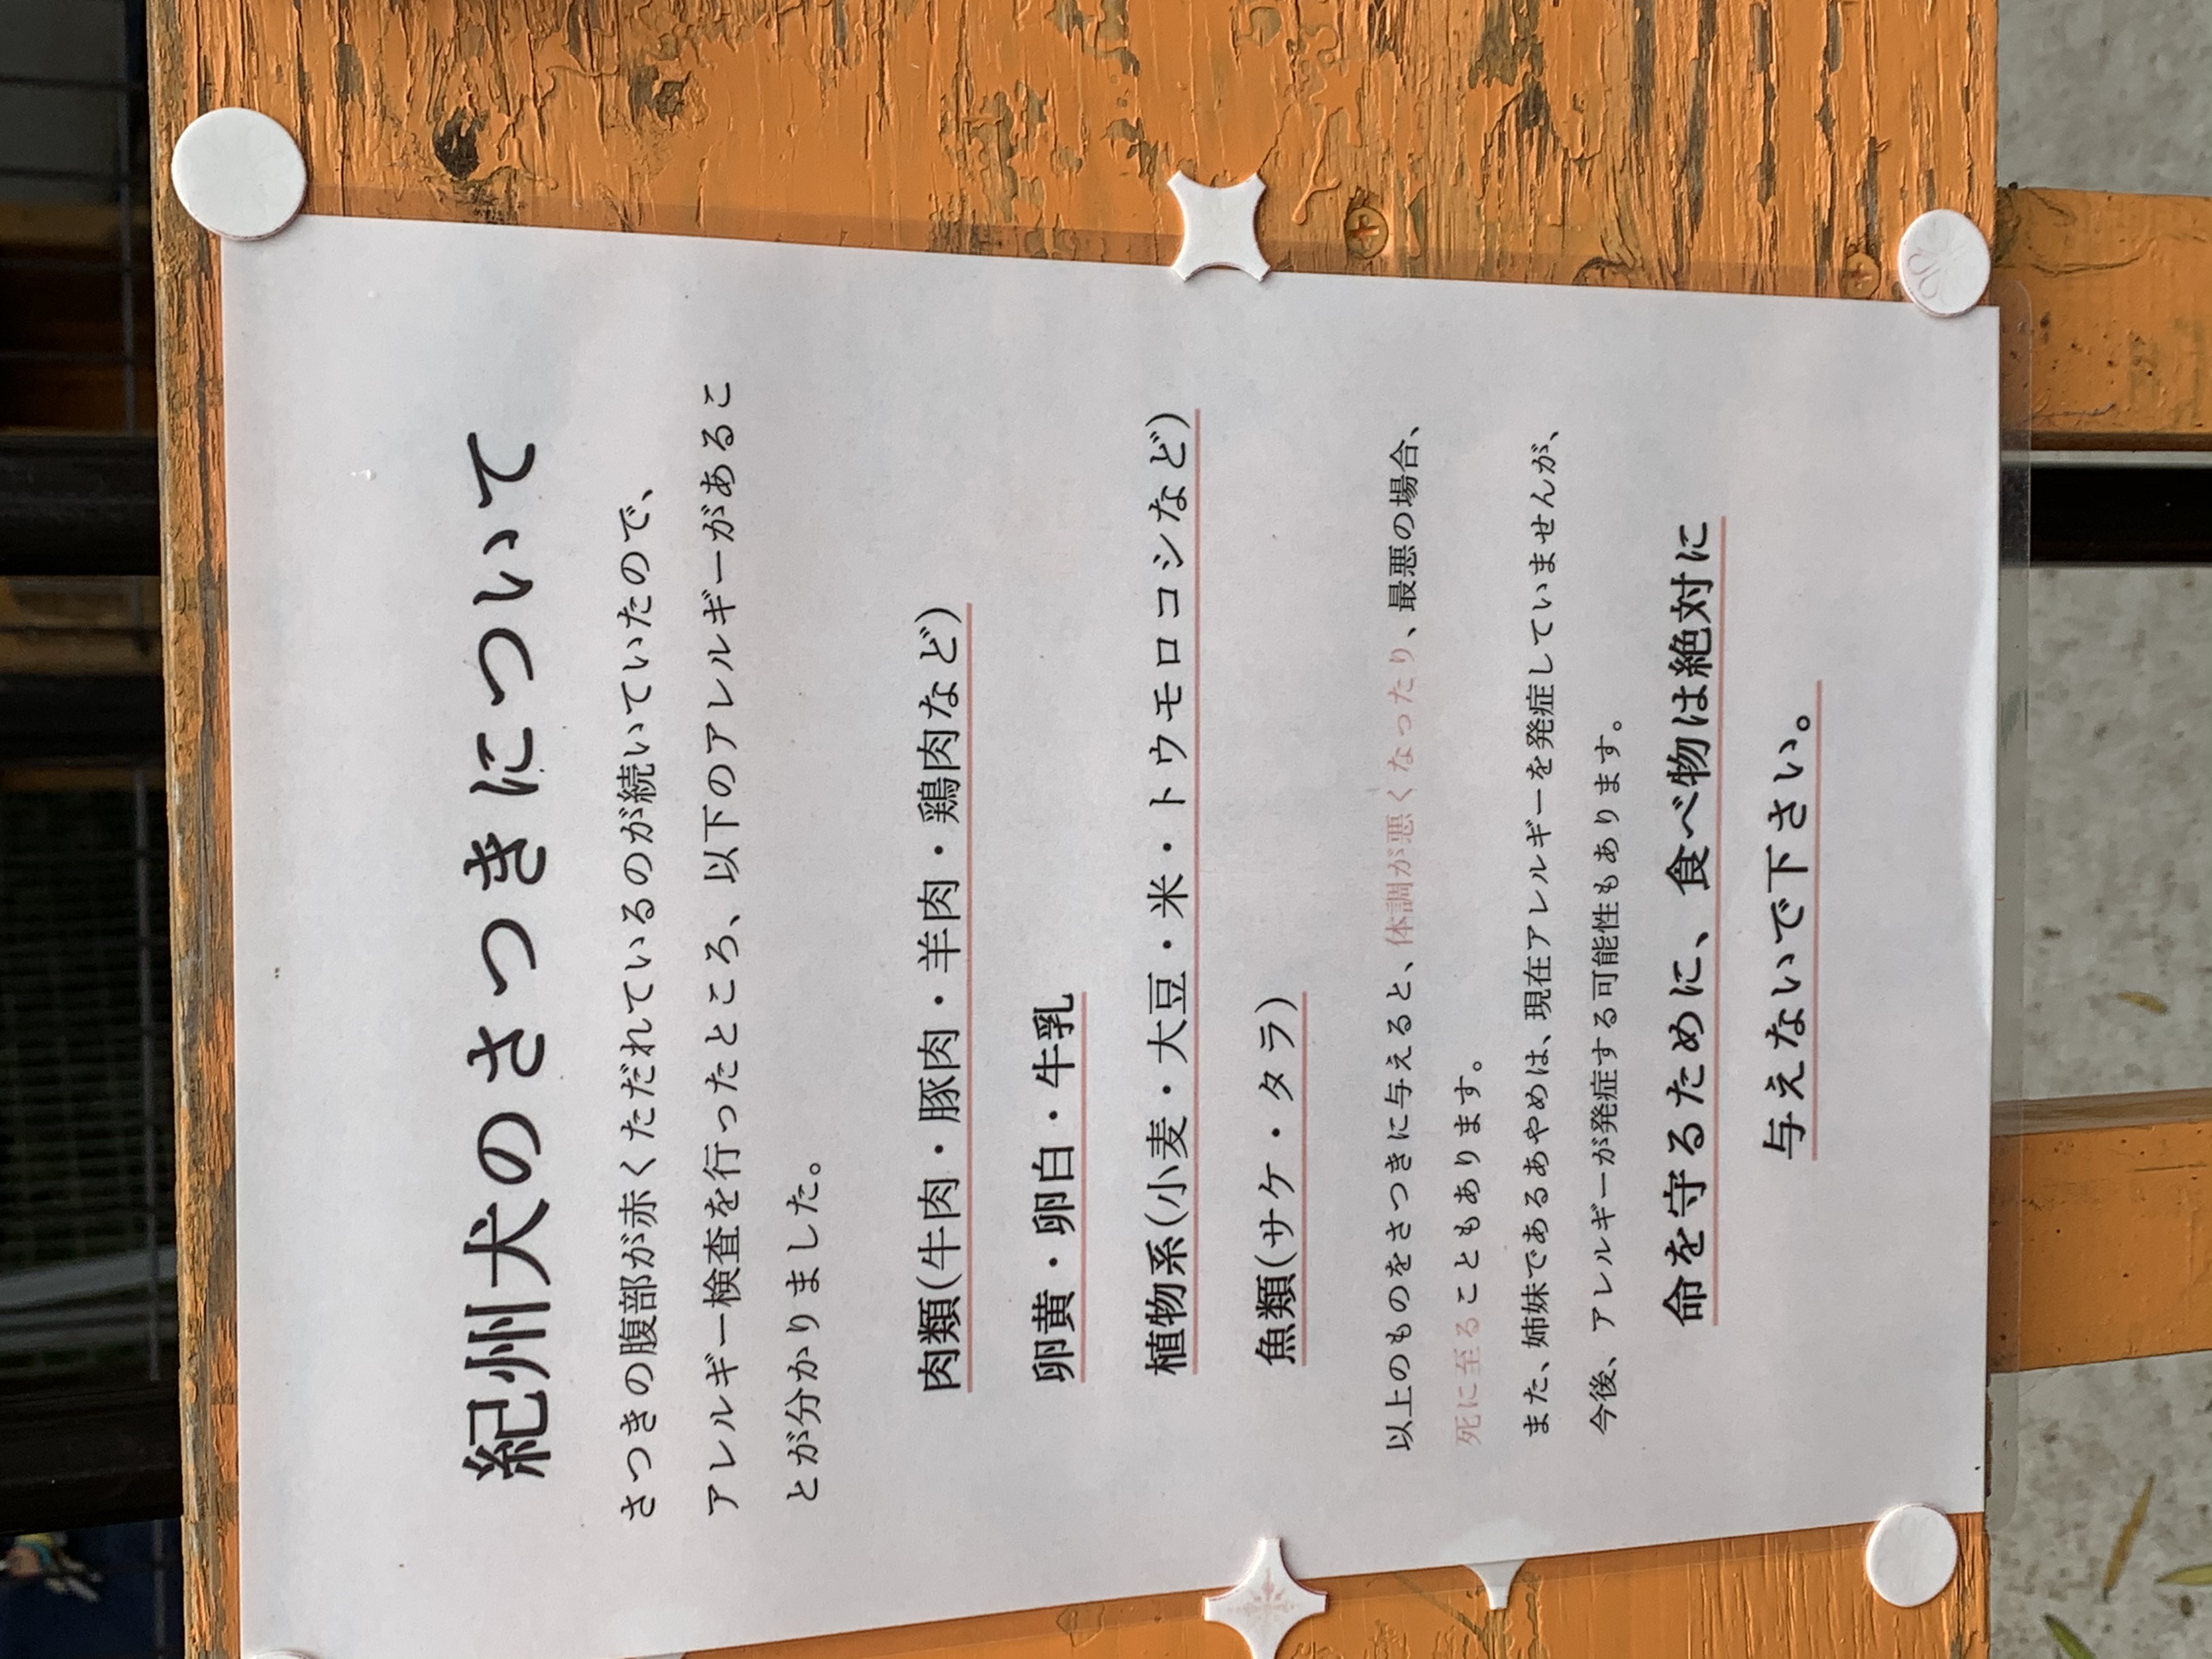 紀州犬のさつきについて
さつきの腹部が赤くただれているのが続いていたので、
アレルギー検査を行ったところ、以下のアレルギーがあるこ
とが分かりました。
肉類(牛肉・豚肉・羊肉・鶏肉など)
卵黄・卵白・牛乳
植物系(小麦・大豆・米・トウモロコシなど)
魚類(サケ・タラ)
以上のものをさつきに与えると、体調が悪くなったり、最悪の場合、
死に至ることもあります。
また、姉妹であるあやめは、現在アレルギーを発症していませんが、
今後、アレルギーが発症する可能性もあります。
命を守るために、食べ物は絶対に
与えないで下さい。